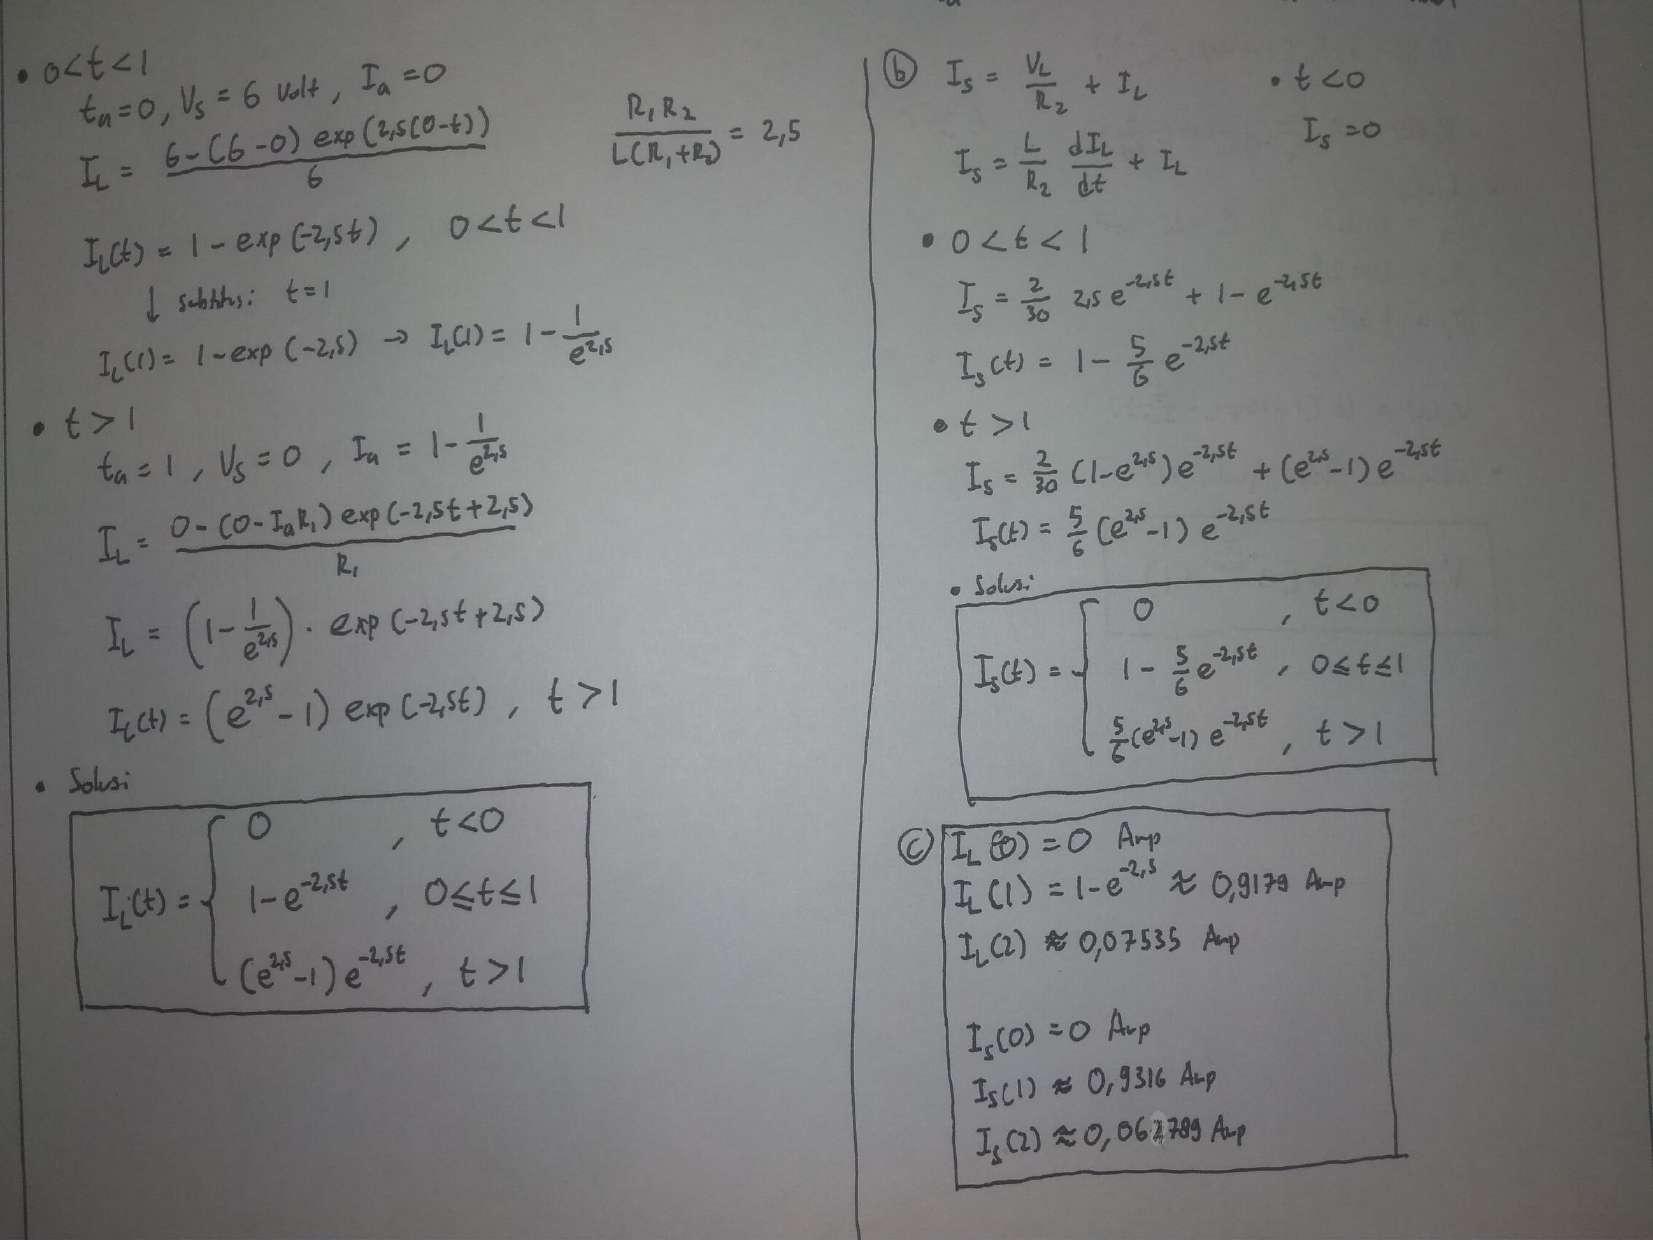 • 0<t<1
ta=0, Vs = 6 Volt, Ia = 0
IL = 6-(6-0) exp(2,5(0-t)) / 6
R1 R2 / L(R1+R2) = 2,5
IL(t) = 1 - exp(-2,5t), 0<t<1
↓ subtitusi t=1
IL(1) = 1-exp(-2,5) → IL(1) = 1 - 1/e^2,5
• t>1
ta=1, Vs=0, Ia = 1 - 1/e^2,5
IL = 0-(0-IaR1) exp(-2,5t+2,5) / R1
IL = (1 - 1/e^2,5) . exp(-2,5t+2,5)
IL(t) = (e^2,5 - 1) exp(-2,5t), t>1
• Solusi
IL(t) = {
0, t<0
1-e^-2,5t, 0≤t≤1
(e^2,5-1) e^-2,5t, t>1
(b) Is = VL/R2 + IL
Is = L/R2 dIL/dt + IL
• t<0
Is = 0
• 0<t<1
Is = 2/30 2,5 e^-2,5t + 1 - e^-2,5t
Is(t) = 1 - 5/6 e^-2,5t
• t>1
Is = 2/30 (1-e^2,5) e^-2,5t + (e^2,5-1) e^-2,5t
Is(t) = 5/6 (e^2,5-1) e^-2,5t
• Solusi
Is(t) = {
0, t<0
1 - 5/6 e^-2,5t, 0≤t≤1
5/6 (e^2,5-1) e^-2,5t, t>1
(c) IL(0) = 0 Amp
IL(1) = 1-e^-2,5 ≈ 0,9179 Amp
IL(2) ≈ 0,07535 Amp
Is(0) = 0 Amp
Is(1) ≈ 0,9316 Amp
Is(2) ≈ 0,062789 Amp